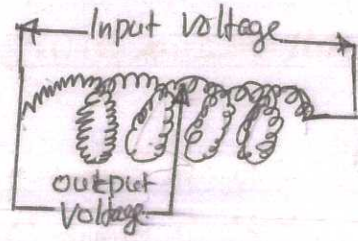 Input voltage
output
voltage